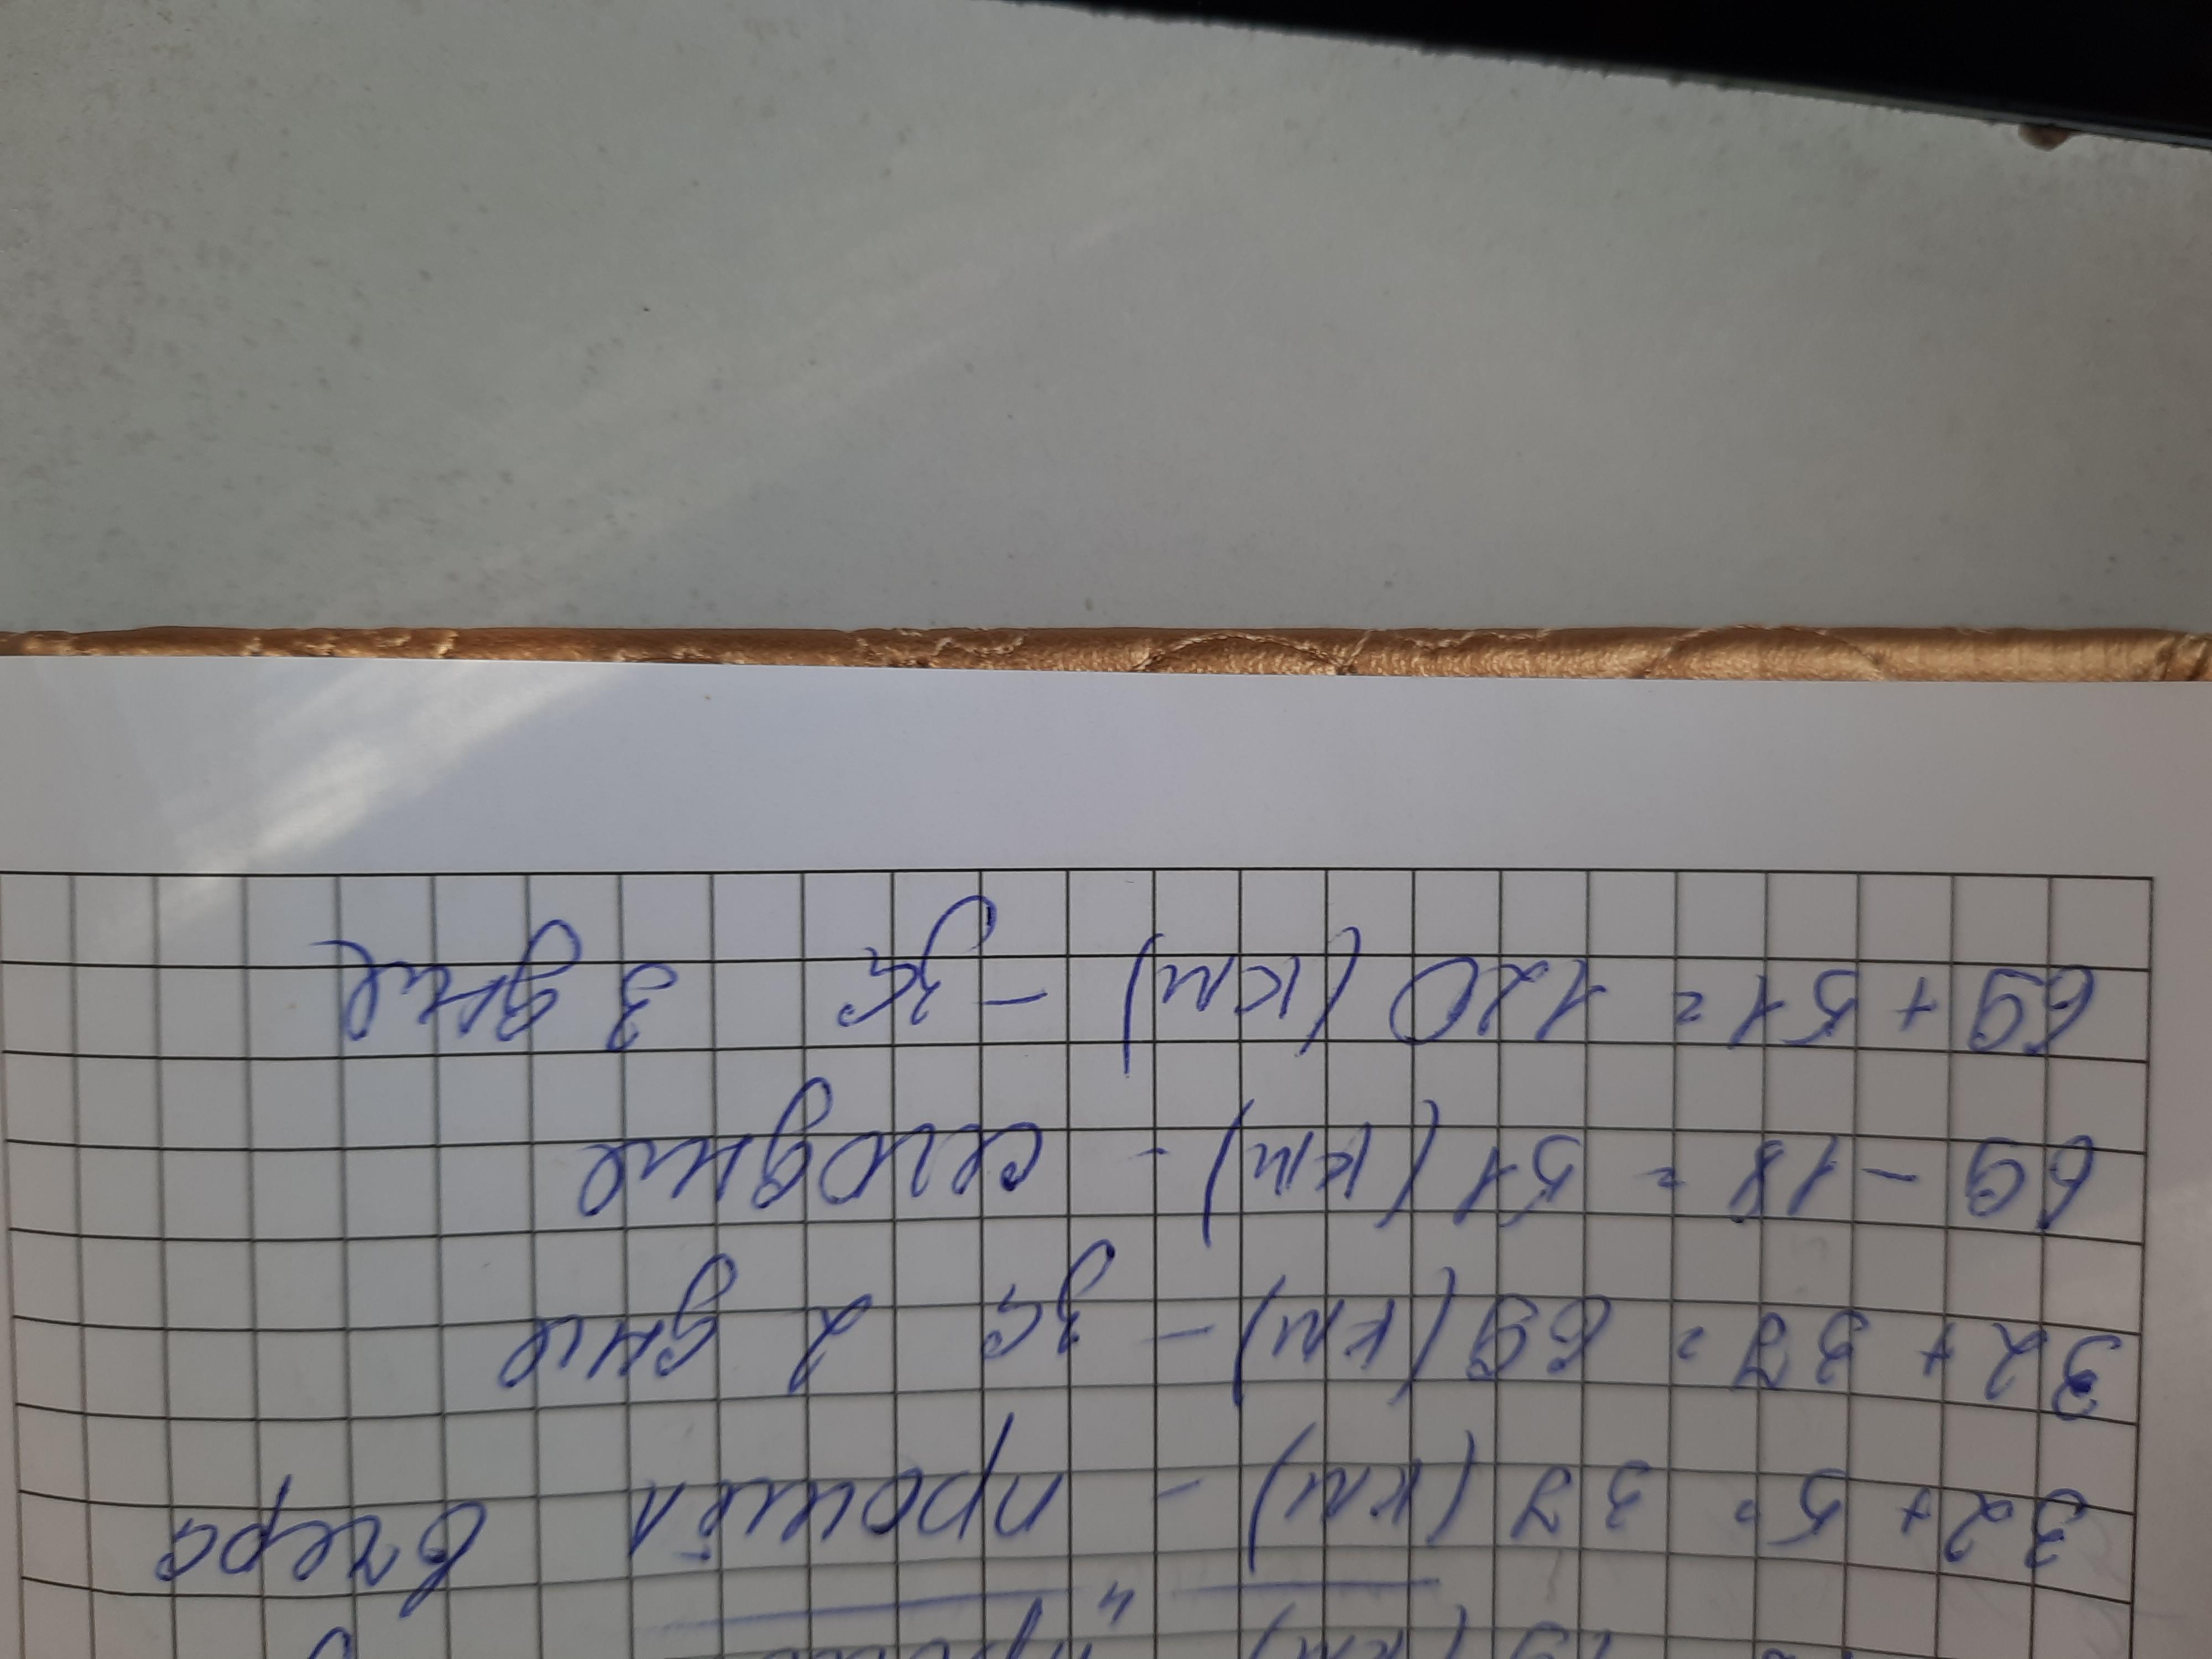 19 (км)
32 + 5 = 37 (км) - прошёл вчера
32 + 37 = 69 (км) - за 2 дня
69 - 18 = 51 (км) - сегодня
69 + 51 = 120 (км) - за 3 дня